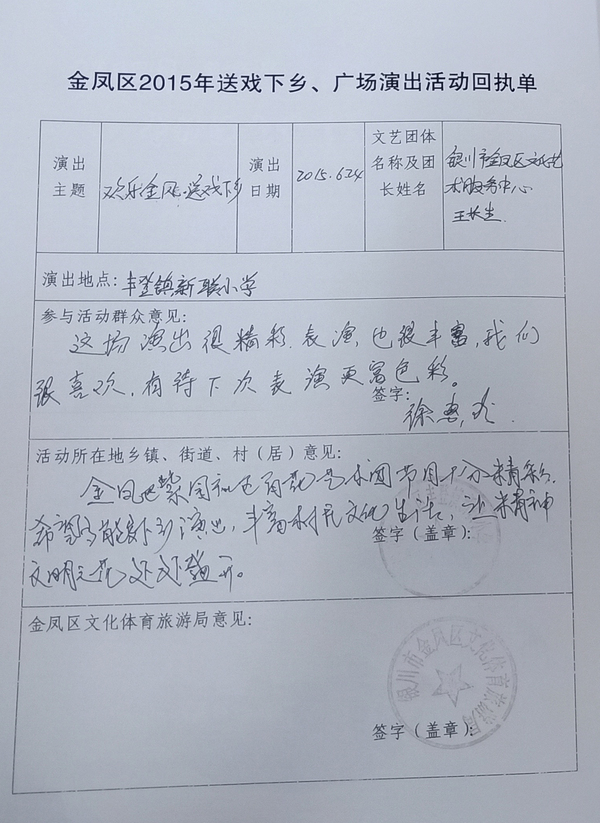 金凤区2015年送戏下乡、广场演出活动回执单
演出主题
欢乐金凤.送戏下乡
演出日期
2015.6.24
文艺团体名称及团长姓名
银川市金凤区文化艺术服务中心
王长生
演出地点:丰登镇新联小学
参与活动群众意见:
这场演出很精彩.表演也很丰富,我们
很喜欢,有待下次表演更富色彩。
签字:
徐惠
活动所在地乡镇、街道、村(居)意见:
金凤区 艺术团节目十分精彩,
希望 能多下乡演出,丰富村民文化生活,让精神
文明之花处处盛开。
签字(盖章):
金凤区文化体育旅游局意见:
银川市金凤区文化体育旅游局
签字(盖章):